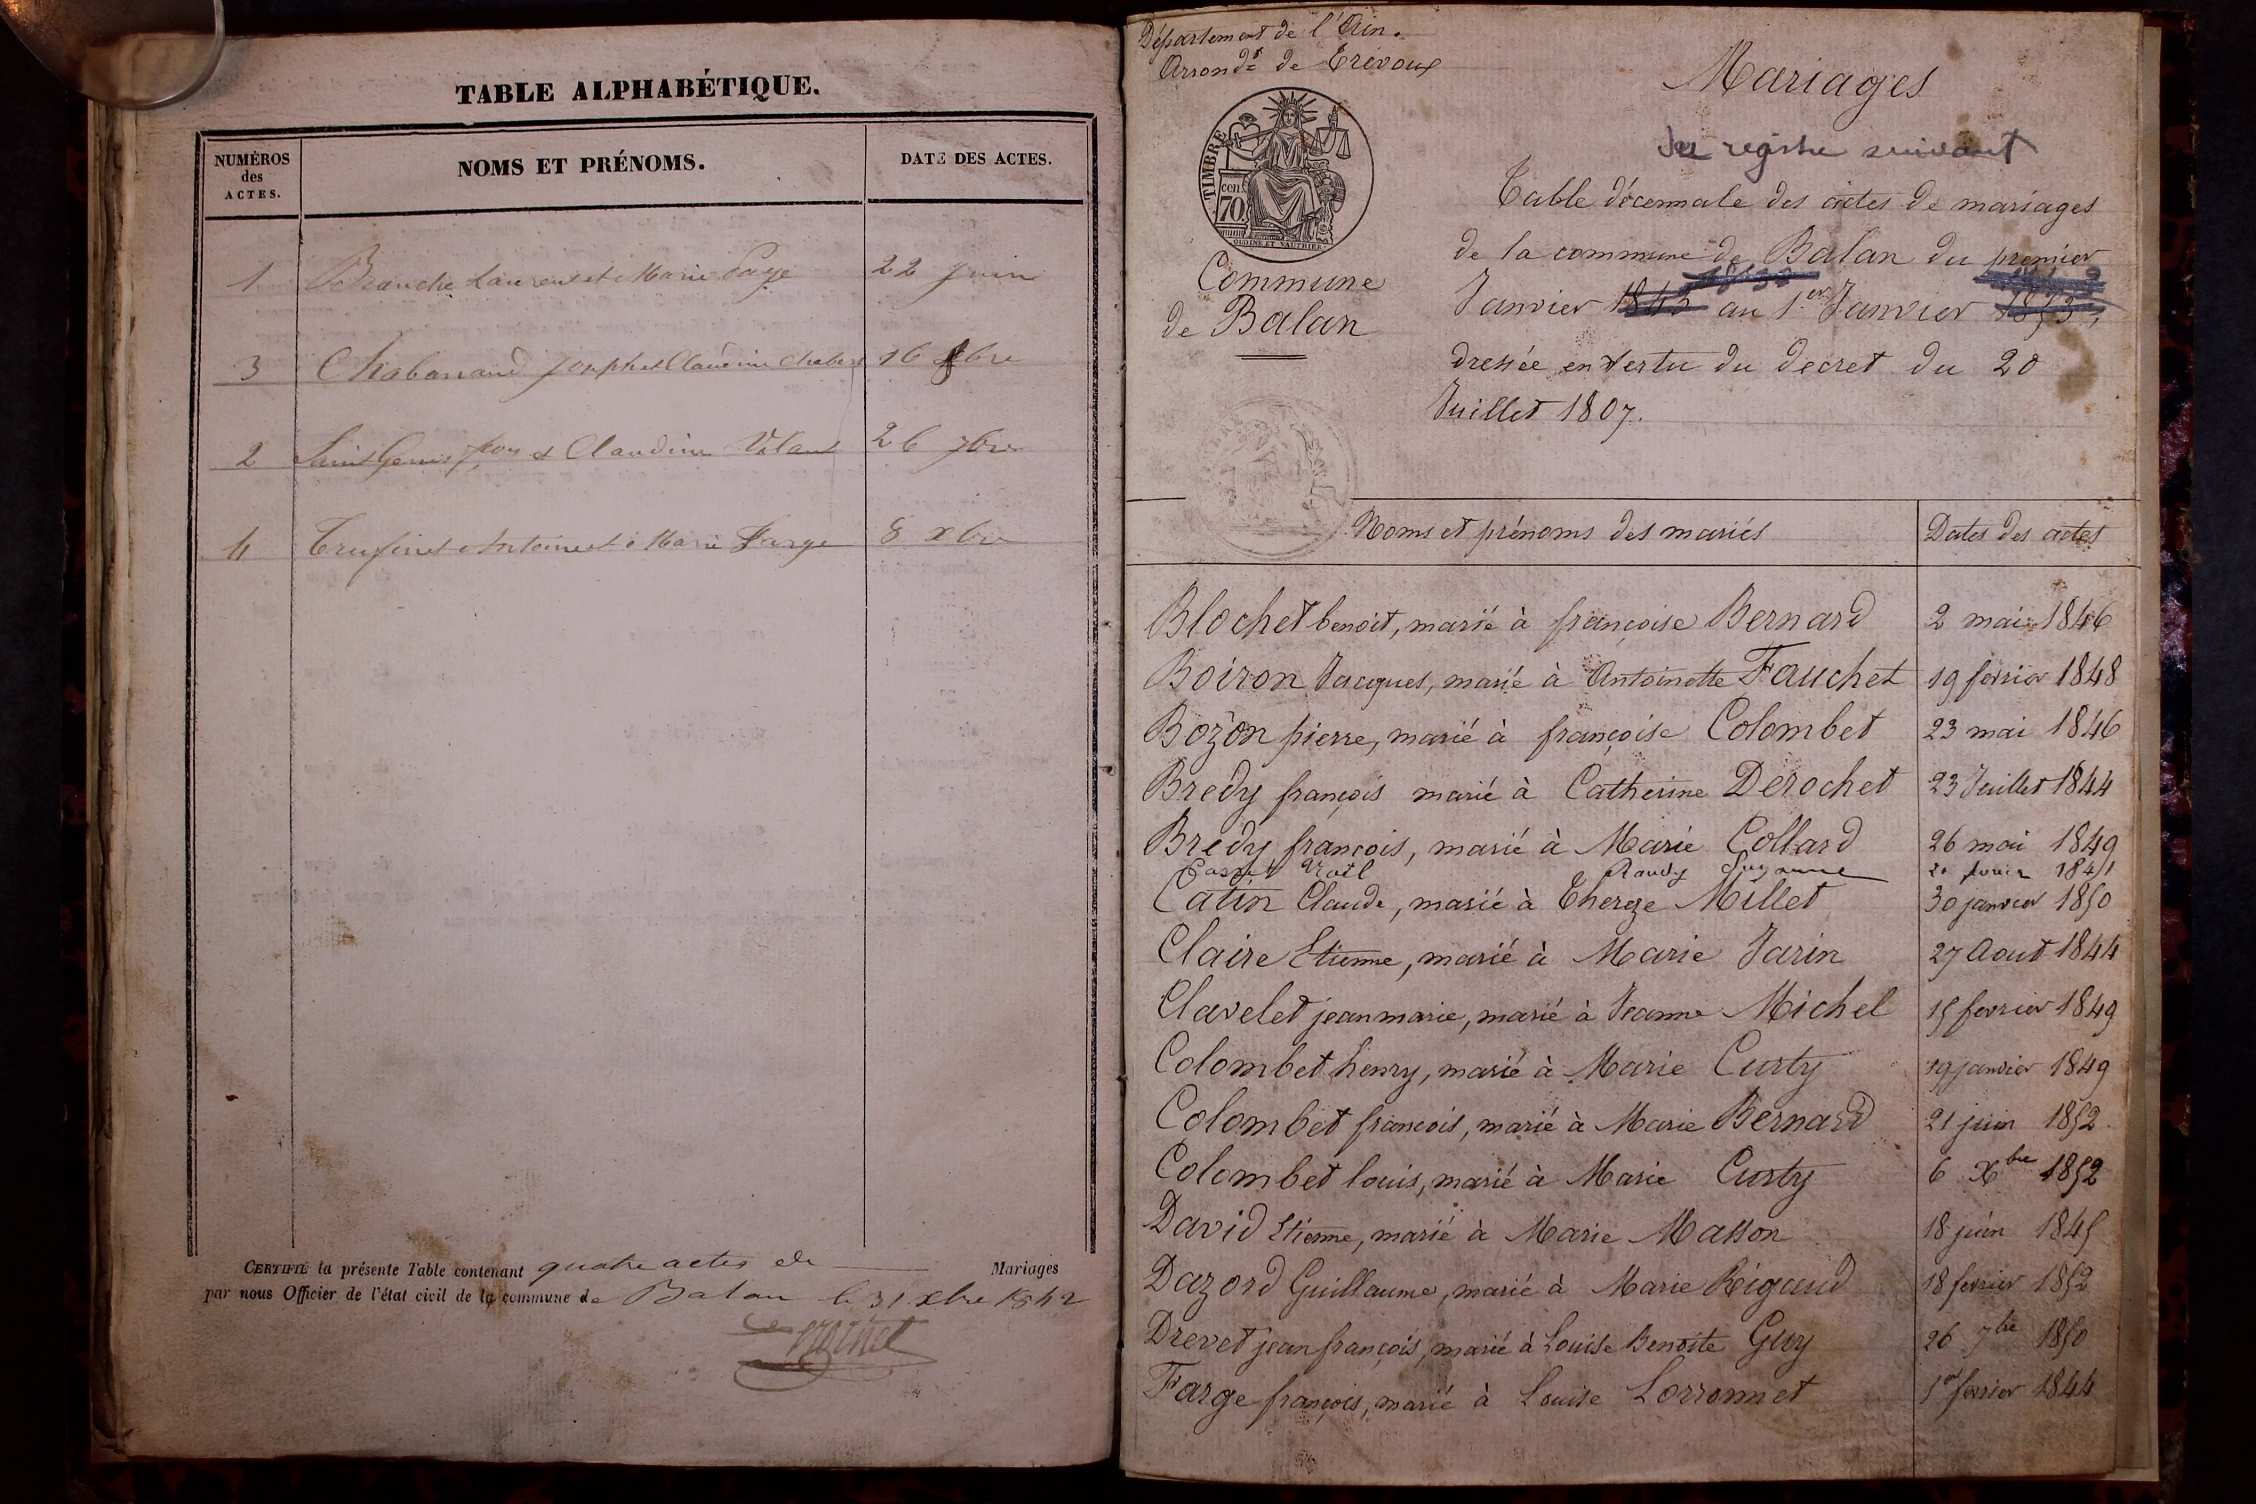 TABLE ALPHABÉTIQUE.
NUMÉROS des ACTES.
NOMS ET PRÉNOMS.
DATE DES ACTES.
1 Branche Laurent et Marie Page 22 Juin
3 Chabanand Joseph et Claudine Chabert 16 8bre
2 Saint Genis et Claudine 26 7bre
4 Trufinet Antoine et Marie Farge 8 xbre
CERTIFIÉ la présente Table contenant quatre actes de Mariages
par nous Officier de l'état civil de la commune de Balan le 31 xbre 1842
Département de l'Ain.
Arrondt de Trévoux
TIMBRE
70 cen.
OUDINE ET VAUTHIER
Commune
de Balan
Mariages
registre suivant
Table décennale des actes de mariages
de la commune de Balan du premier
Janvier 1843 au 1er Janvier 1853,
dressée en vertu du decret du 20
Juillet 1807.
Noms et prénoms des mariés
Dates des actes
Blochet benoit, marié à françoise Bernard 2 mai 1846
Boiron Jacques, marié à Antoinette Fauchet 19 fevrier 1848
Bozon pierre, marié à françoise Colombet 23 mai 1846
Bredy françois marié à Catherine Derochet 23 Juillet 1844
Bredy françois, marié à Marie Collard 26 mai 1849
Noël Suzanne
Catin Claude, marié à Thereze Millet 30 janvier 1850
Claire Etienne, marié à Marie Jarin 27 Aout 1844
Clavelet jeanmarie, marié à Jeanne Michel 15 fevrier 1849
Colombet henry, marié à Marie Curty 19 janvier 1849
Colombet francois, marié à Marie Bernard 21 juin 1852
Colombet louis, marié à Marie Curty 6 Xbre 1852
David Etienne, marié à Marie Masson 18 juin 1845
Dazord Guillaume, marié à Marie Rigaud 18 fevrier 1852
Drevet jean françois, marié à Louise Benoite Guy 26 7bre 1850
Farge françois, marié à Louise Lorronnet 1er fevrier 1844